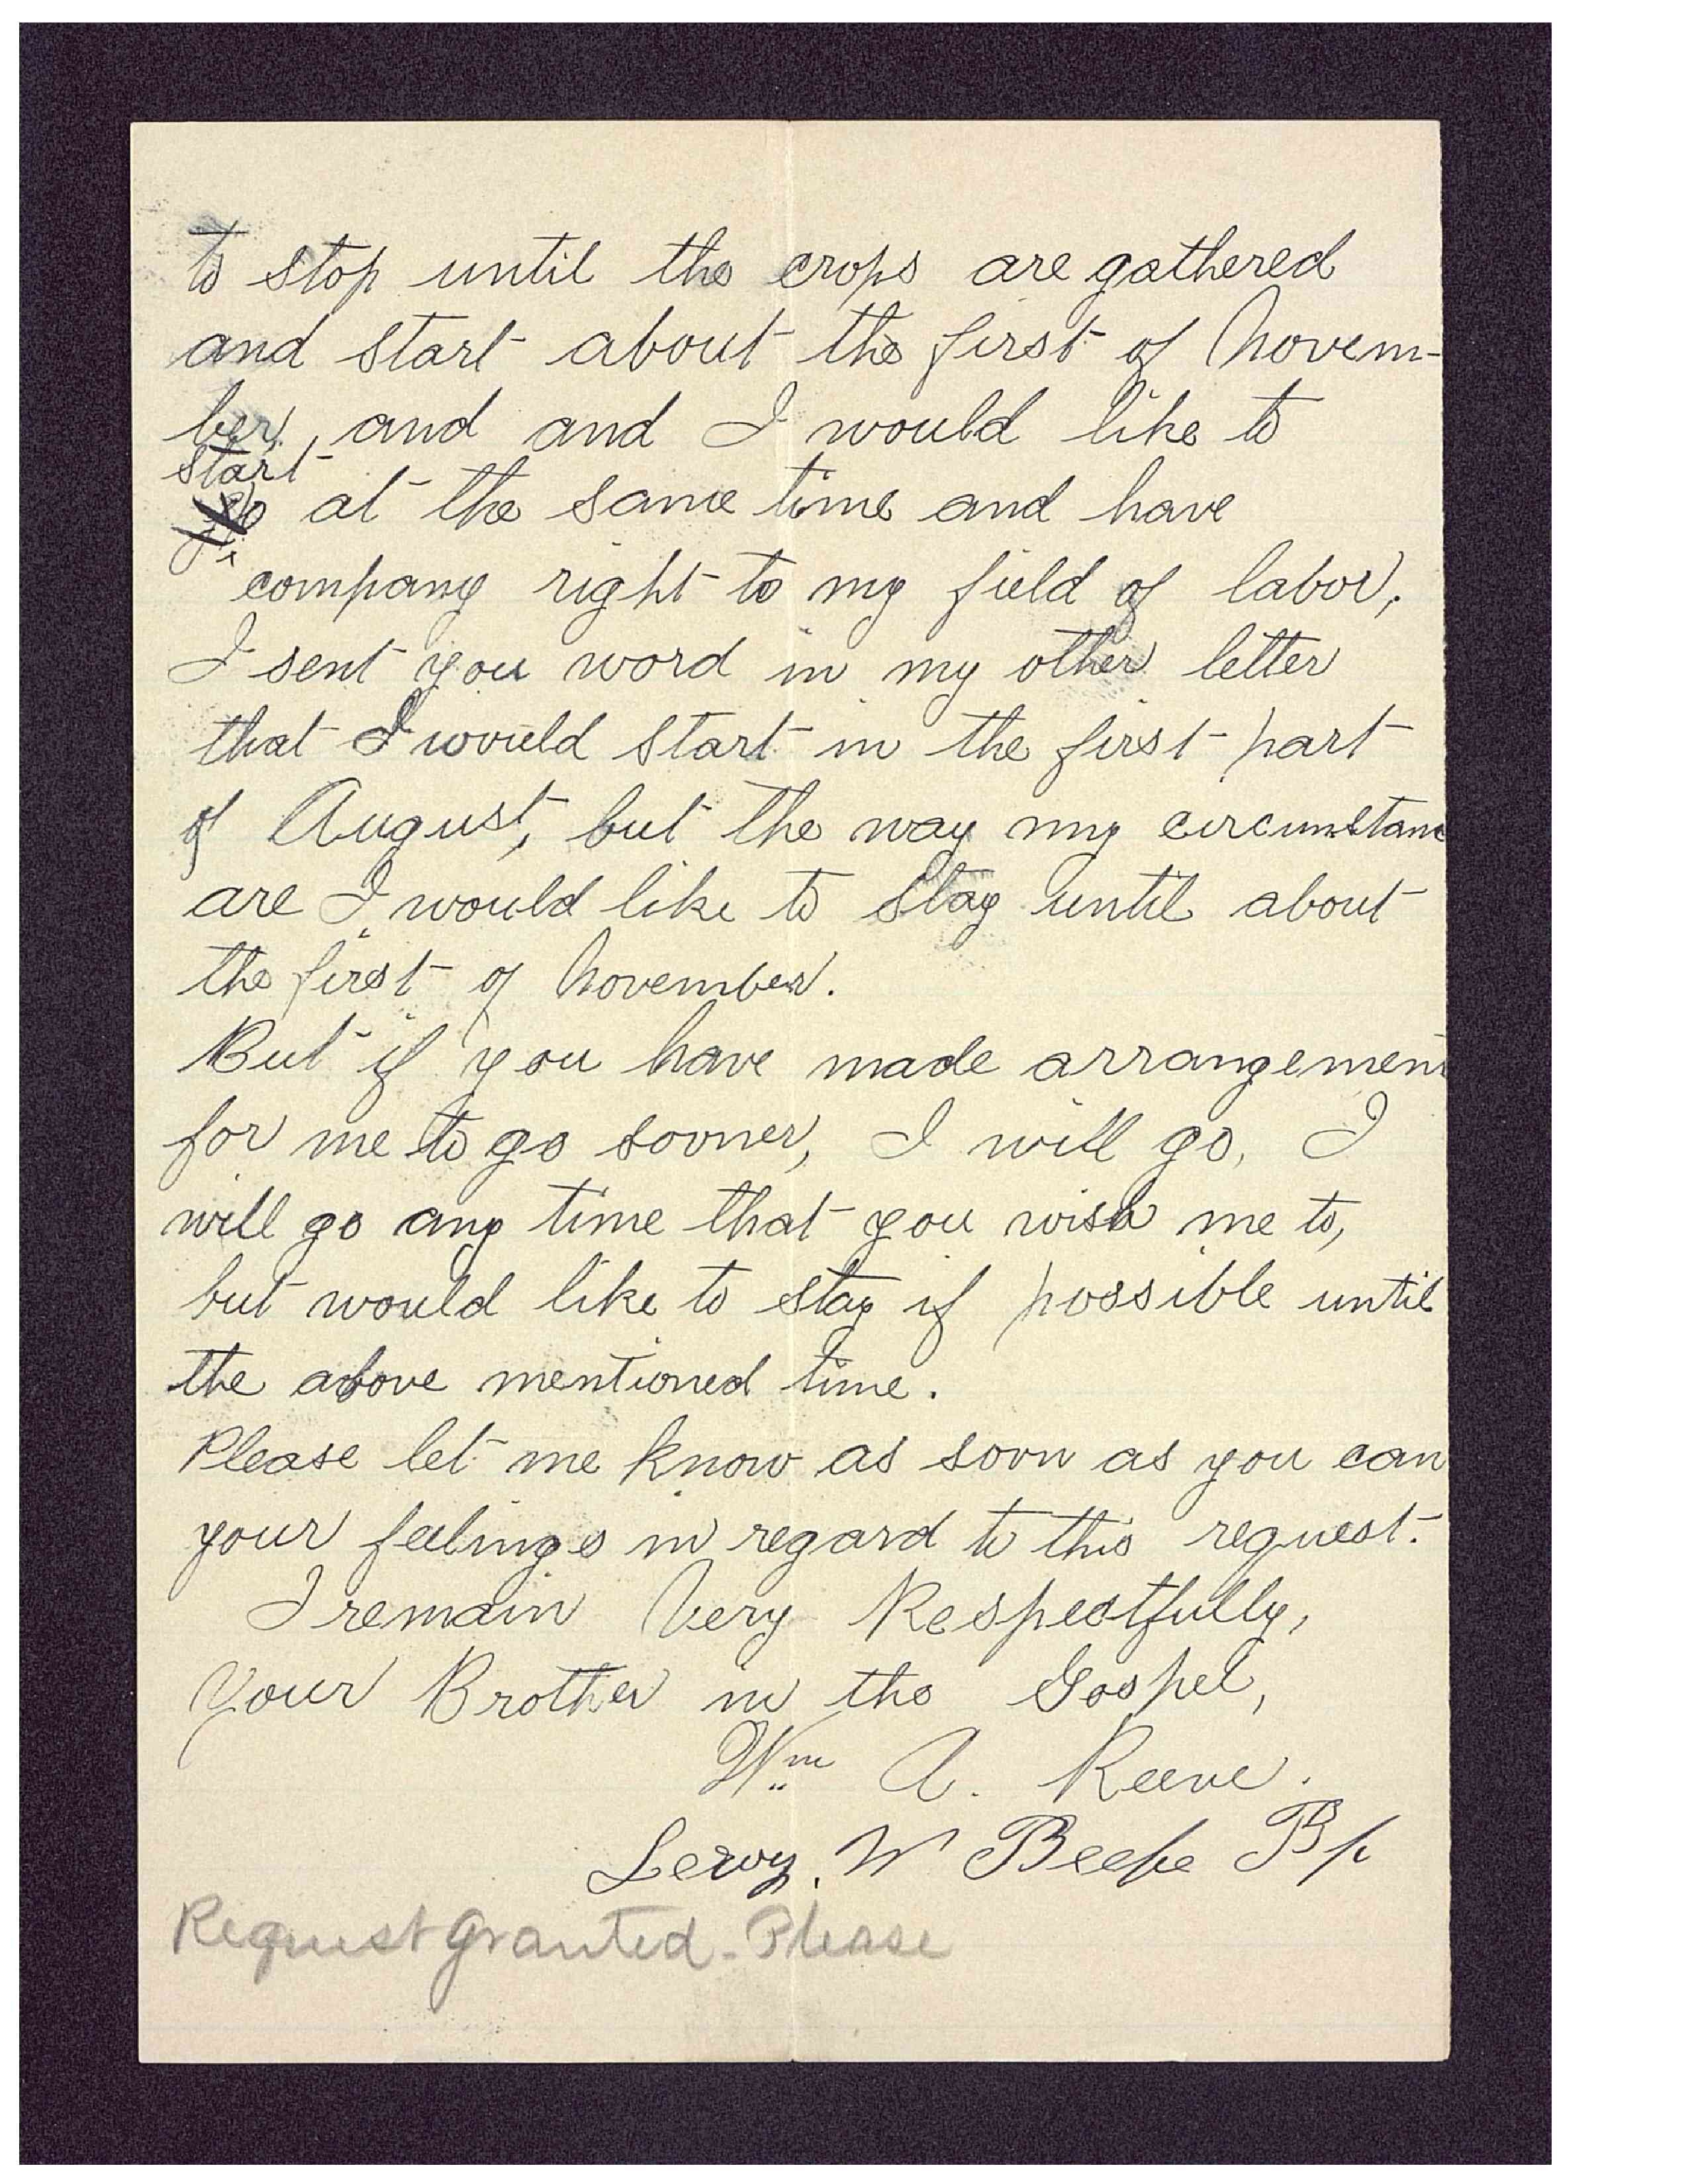 to stop until the crops are gathered
and start about the first of Novem-
ber, and and I would like to
start
go at the same time and have
company right to my field of labor,
I sent you word in my other letter
that I would start in the first part
of August, but the way my circumstanc
are I would like to stay until about
the first of November.
But if you have made arrangement
for me to go sooner, I will go, I
will go any time that you wish me to,
but would like to stay if possible until
the above mentioned time.
Please let me know as soon as you can
your feelings in regard to this request.
I remain Very Respectfully,
Your Brother in the Gospel,
Wm A. Reeve.
Leroy. W Beebe Bp
Request granted - Please